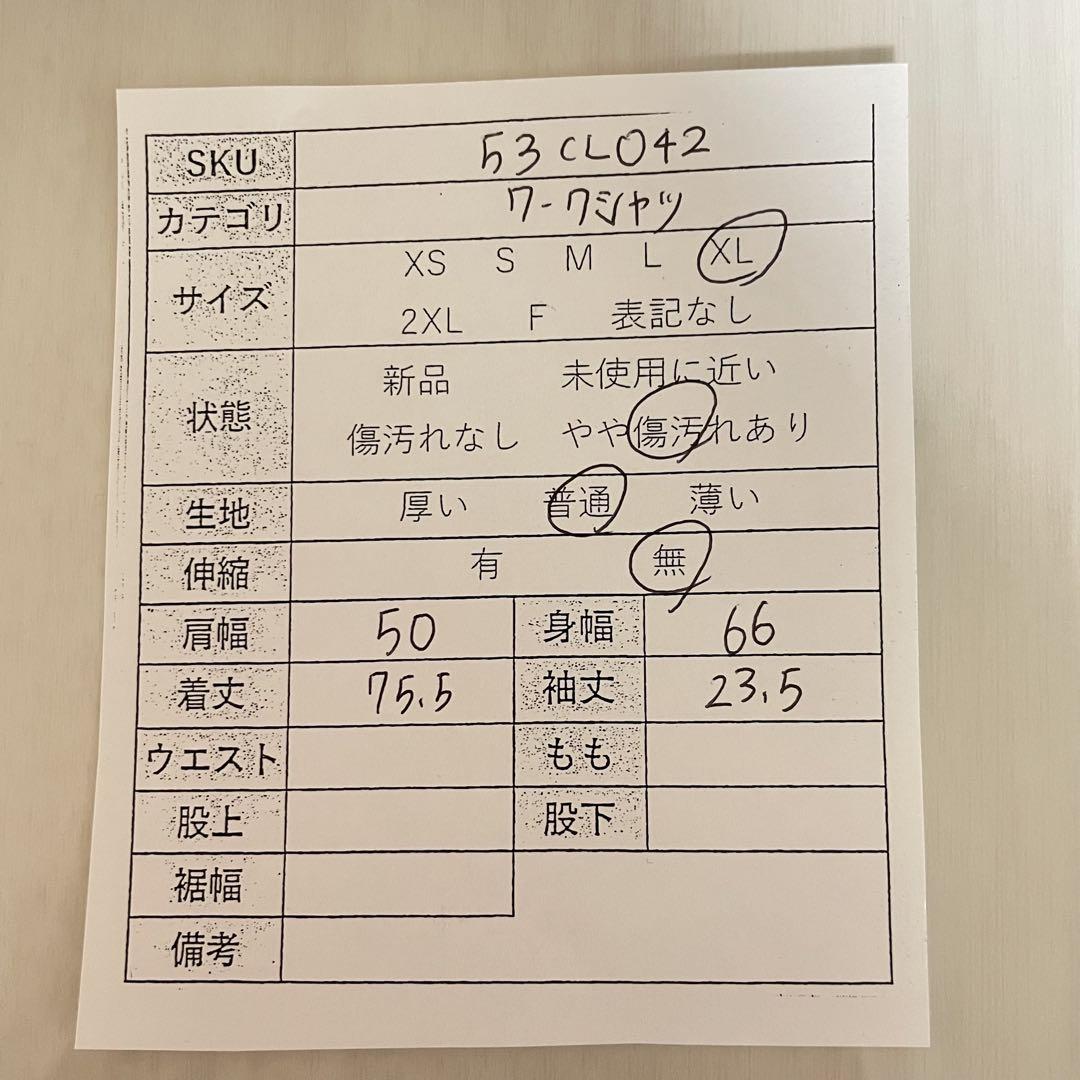 SKU 53CL042
カテゴリ ワークシャツ
サイズ XS S M L XL
2XL F 表記なし
状態 新品 未使用に近い
傷汚れなし やや傷汚れあり
生地 厚い 普通 薄い
伸縮 有 無
肩幅 50 身幅 66
着丈 75.5 袖丈 23.5
ウエスト もも
股上 股下
裾幅
備考